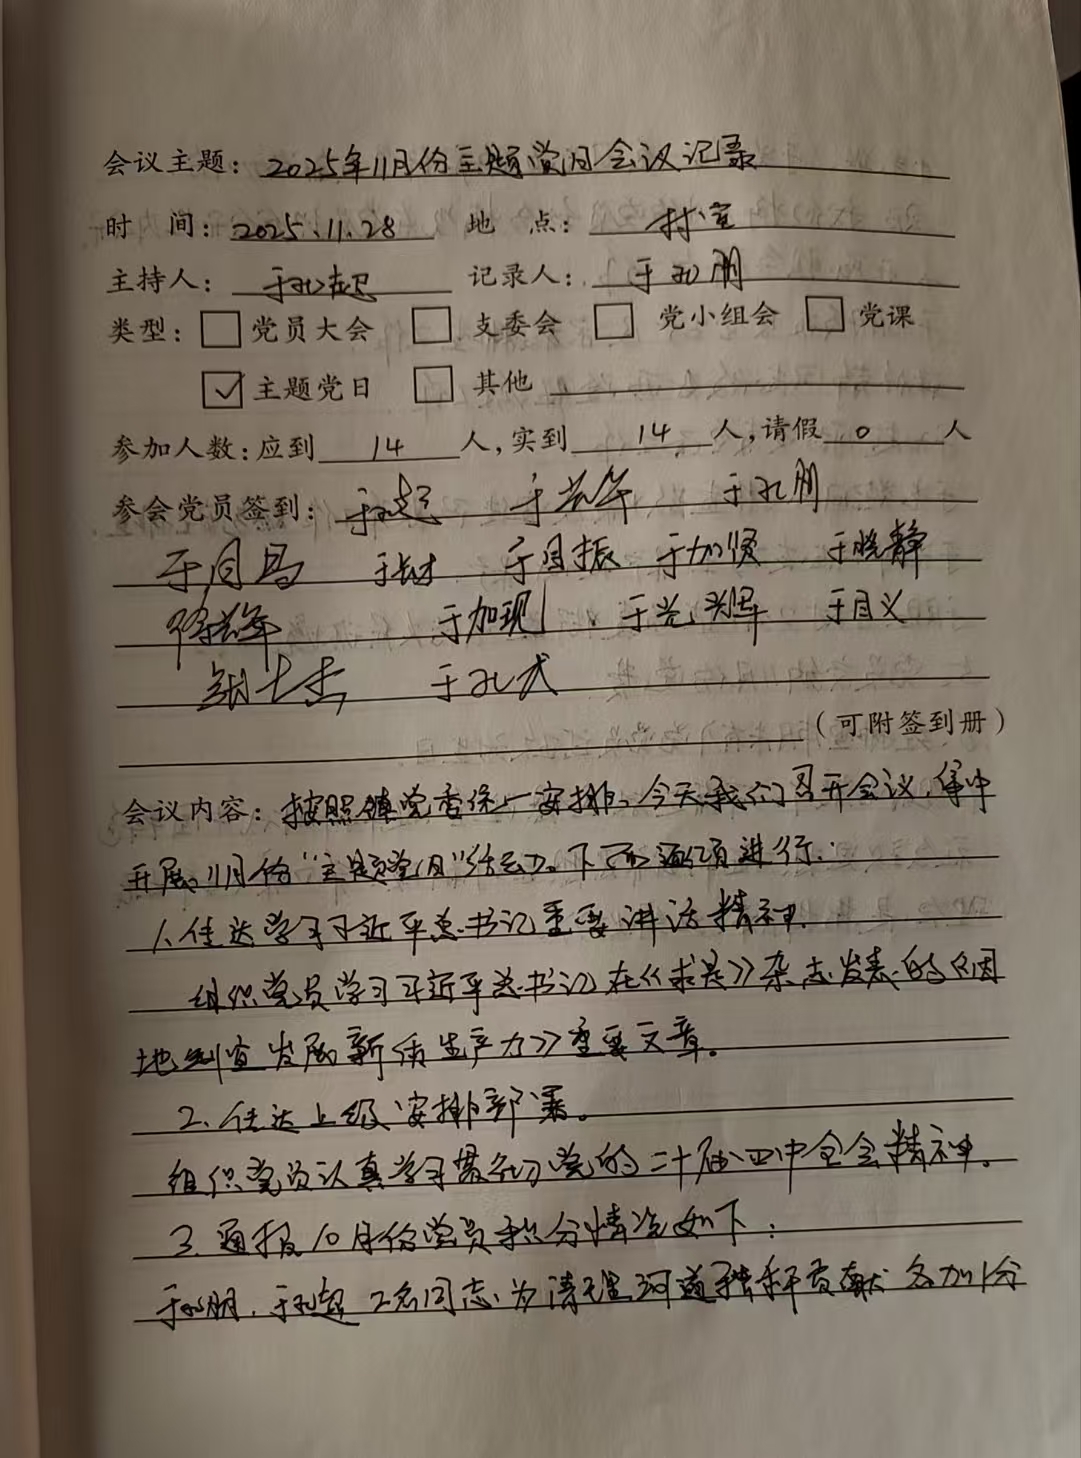 会议主题：2025年11月份主题党日会议记录
时 间：2025.11.28 地 点：村室
主持人：于孔超 记录人：于孔朋
类型：□党员大会 □支委会 □党小组会 □党课
☑主题党日 □其他
参加人数：应到 14 人，实到 14 人，请假 0 人
参会党员签到：于孔超 于兴华 于孔朋
于月马 于长才 于月振 于加贤 于晓静
于加现 于光辉 于月义
士杰 于孔武
（可附签到册）
会议内容：按照镇党委统一安排，今天我们召开会议，集中
开展11月份“主题党日”活动。下面逐项进行：
1、传达学习习近平总书记重要讲话精神。
组织党员学习习近平总书记在《求是》杂志发表的《因
地制宜发展新质生产力》重要文章。
2、传达上级安排部署。
组织党员认真学习贯彻党的二十届四中全会精神。
3、通报10月份党员积分情况如下：
于孔朋、于孔超2名同志为清理河道秸秆贡献各加1分